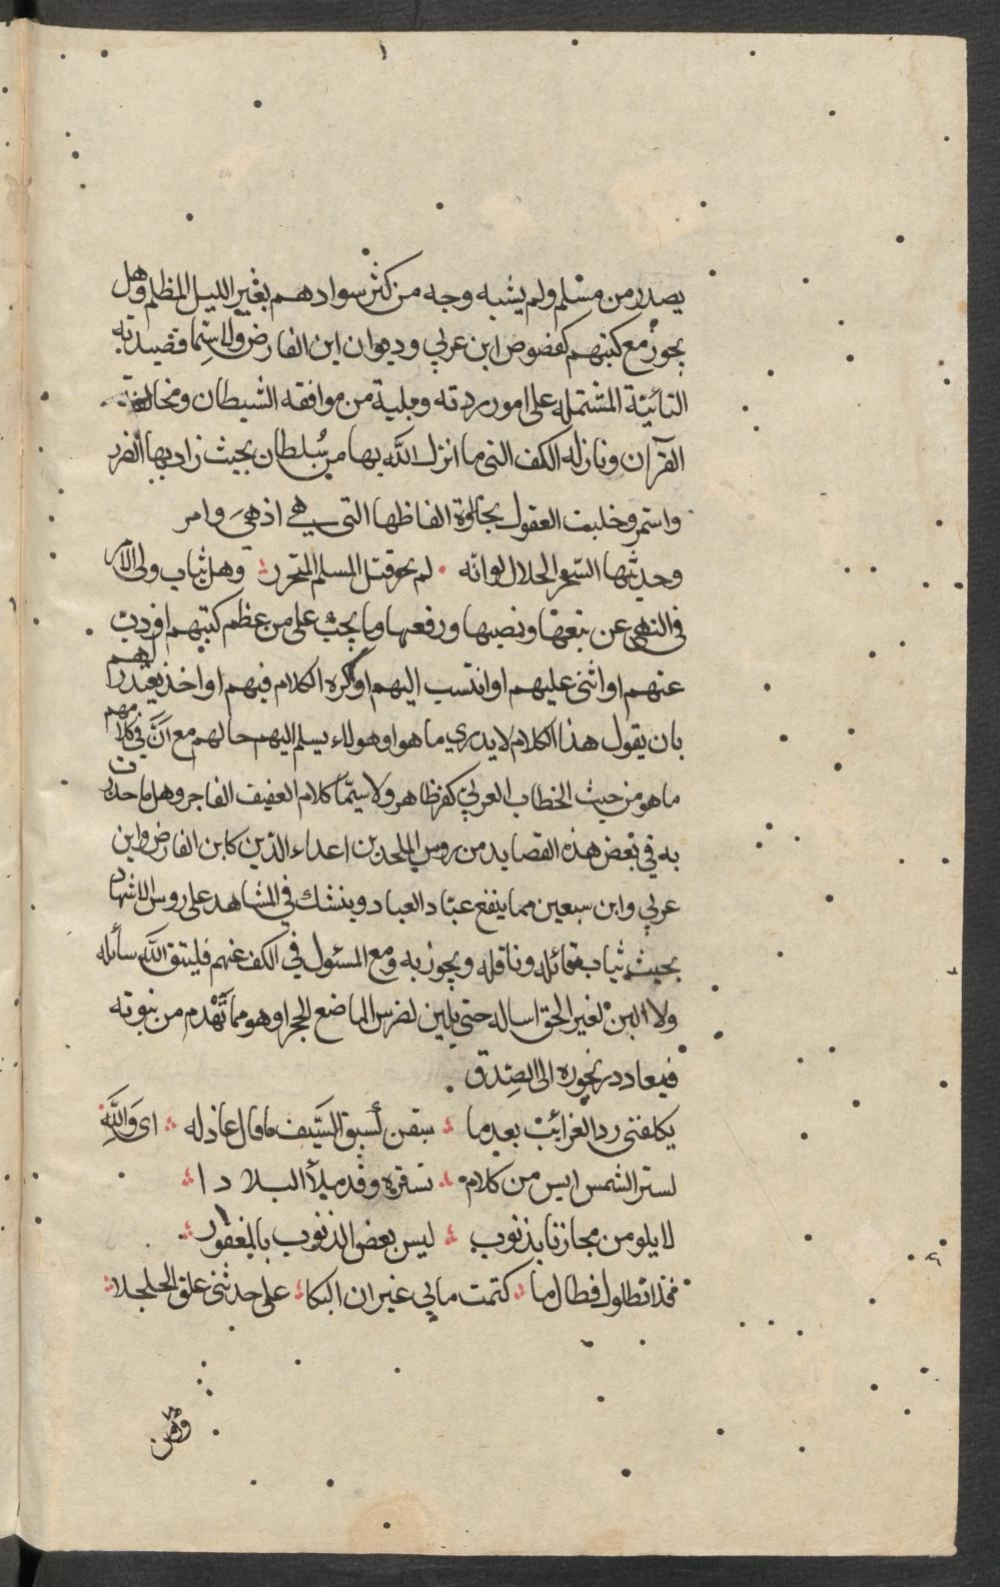 يصدر من مسلم ولم يشبه وجه من كثر سوادهم بغير الليل المظلم وهل
يجوز مع كتبهم كفصوص ابن عربي وديوان ابن الفارض ولا سيما قصيدته
التائية المشتمله على امور ردته وبلية من موافقه الشيطان ومخالفة
القرآن ونازله الكف التى ما انزل الله بها من سُلطان بحيث زاد بها الضرر
واستمر وخلبت العقول بحلاوة الفاظها التى هي اذهى وامر
وحديثها السّحر الحلال لوانه ٠ لم يحز قتل المسلم المتحرز وهل يثاب ولى الامر
فى النهى عن تبعتها ونصبها ورفعها وما يجب على من عظم كتبهم او ذبّ
عنهم او اثنى عليهم او انتسب اليهم او كره الكلام فيهم او اخذ يعتذر لهم
بان يقول هذا الكلام لا يدري ما هو او هولاء يسلم اليهم حالهم مع انّ في كلامهم
ما هو من حيث الخطاب العربيّ كفر ظاهر ولا سيّما كلام العفيف الفاجر وهل ما حدث
به في بعض هذه القصايد من روس الملحدين اعداء الدّين كابن الفارض وابن
عربي وابن سبعين مما ينفع عبّاد العباد وينشد في المشاهد على روس الاشهاد
بحيث يثاب قائله وناقله ويجوز به ومع المسئول في الكف عنهم فليتق الله سائله
ولا الين لغير الحق اساله حتى يلين لضرس الماضغ الحجر او هو مما تهدم من بنوته
فيعاد در نحوره الى الصِدق
يكلفنى رد الغرائب بعد ما سبقن كسبق السّيف ما قال عاذله اى وَاللهِ
لستر الشمس ايس من كلام تستره وقد ملأ البلادا
لا يلومن مجازنا بذنوب ليس بعض الذنوب بالمغفور
فطال ما كتمت مابي غير ان البكا على خدثنى علق الجلجلا
ومن